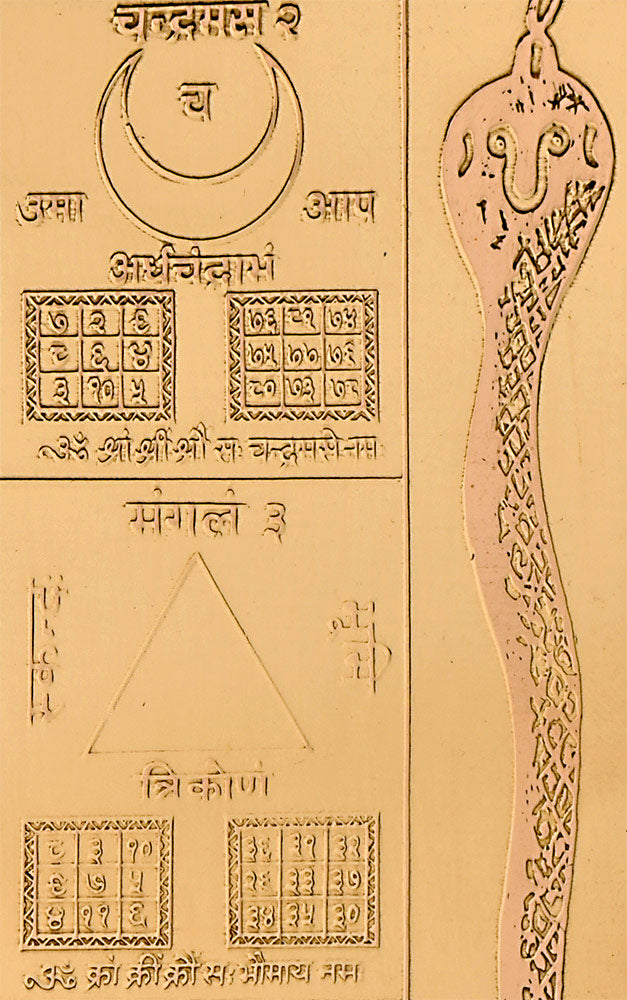 चन्द्रमस २
च
उमा आप
अर्धचंद्राभं
७ २ ९ ७६ ८१ ७४
८ ६ ४ ७५ ७७ ७९
३ १० ५ ८० ७३ ७८
ॐ श्रां श्रीं श्रौं सः चन्द्रमसे नमः
मांगलं ३
स्कन्दः भूमि
त्रिकोणं
८ ३ १० ३६ ३१ ३२
९ ७ ५ २९ ३३ ३७
४ ११ ६ ३४ ३५ ३०
ॐ क्रां क्रीं क्रौं सः भौमाय नम